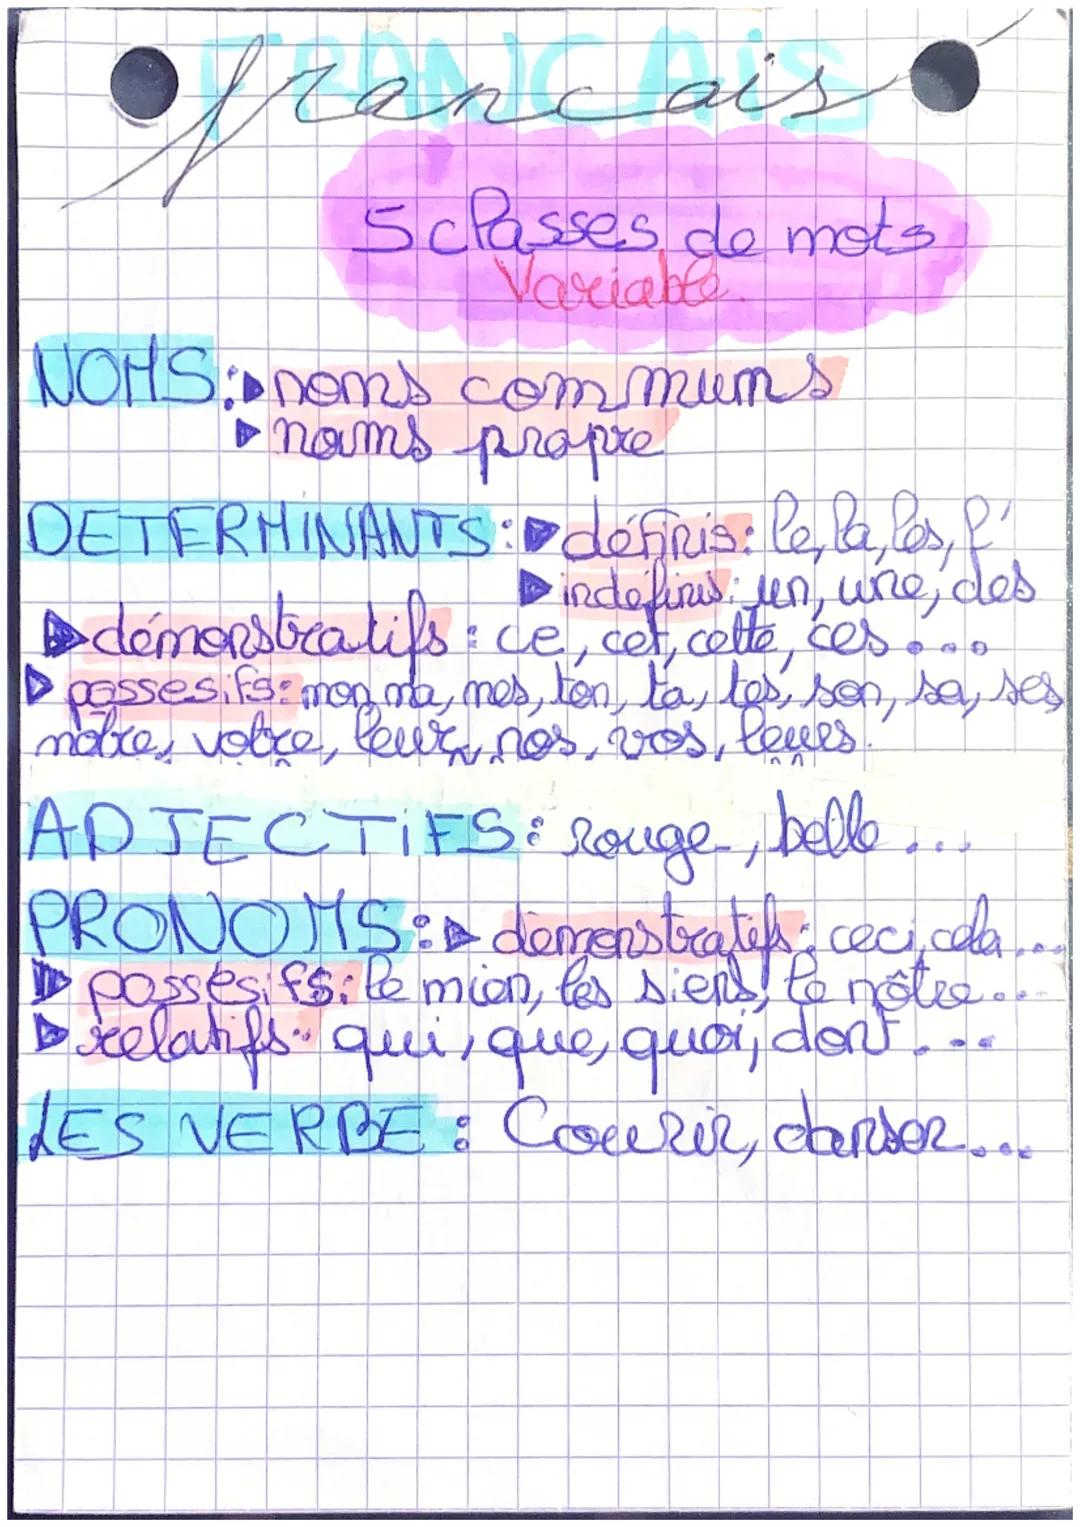 FRANCAIS
francais
5 classes de mots
Variable.
NOMS : noms communs
noms propre
DETERMINANTS : définis : le, la, les, l'
indéfinis : un, une, des
démonstratifs : ce, cet, cette, ces ...
possesifs : mon, ma, mes, ton, ta, tes, son, sa, ses
notre, votre, leur, nos, vos, leurs.
ADJECTiFS : rouge, belle ...
PRONOMS : démonstratifs : ceci, cela ...
possésifs : le mien, les siens, le nôtre ...
relatifs : qui, que, quoi, dont ...
LES VERBE : Courir, danser ...